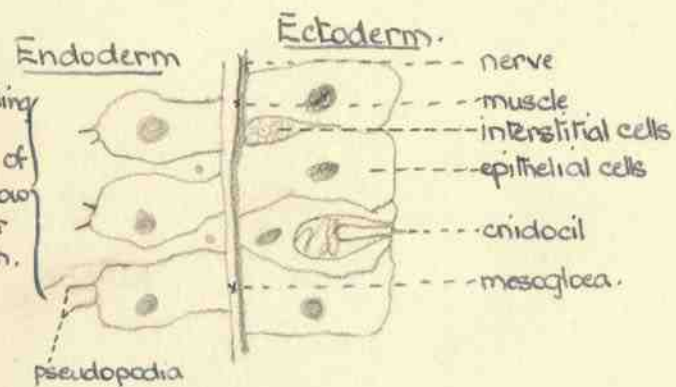 Ectoderm.
Endoderm
nerve
muscle
interstitial cells
epithelial cells
cnidocil
mesogloea.
of
pseudopodia